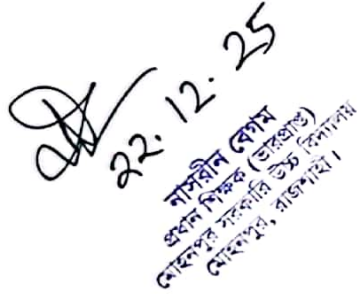 22.12.25
নাসরীন বেগম
প্রধান শিক্ষক (ভারপ্রাপ্ত)
মোহনপুর সরকারি উচ্চ বিদ্যালয়
মোহনপুর, রাজশাহী।